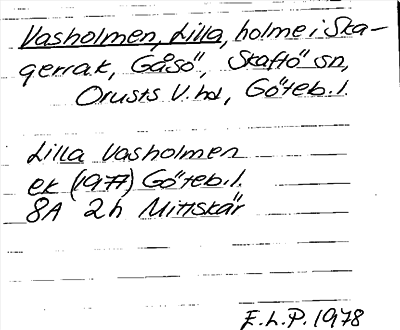 Vasholmen, Lilla, holme i Ska-
gerrak, Gåsö, Skaftö sn,
Orusts V. hd, Göteb. l.
Lilla Vasholmen
ek (1977) Göteb. l.
8A 2h Mittskär
E.L.P. 1978